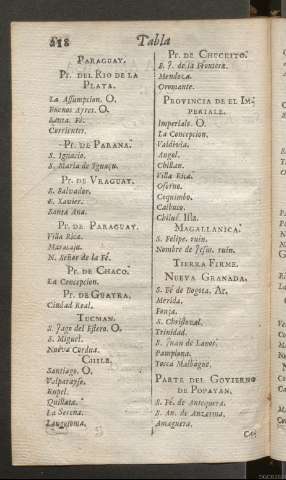 218
Tabla
PARAGUAY.
Pr. DEL RIO DE LA
PLATA.
La Assumpcion. O.
Buenos Ayres. O.
Santa. Fé.
Corrientes.
Pr. DE PARANA.
S. Ignacio.
S. Maria de Iguaçu.
Pr. DE VRAGUAY.
S. Salvador.
S. Xavier.
Santa Ana.
Pr. DE PARAGUAY.
Villa Rica.
Maracaju.
N. Señor de la Fé.
Pr. DE CHACO.
La Concepcion.
Pr. DE GUAYRA.
Ciudad Real.
TUCMAN.
S. Jago del Estero. O.
S. Miguel.
Nueva Cordua.
CHILE.
Santiago. O.
Valparayso.
Rupel.
Quillata.
La Serena.
Pr. DE CHUCUITO.
S. J. de la Frontera.
Mendoza.
Oromante.
PROVINCIA DE EL IM-
PERIALE.
Imperiale. O.
La Concepcion.
Valdivia.
Angol.
Chillan.
Villa Rica.
Osorno.
Coquimbo.
Calbuco.
Chiluè. Isla.
MAGALLANICA.
S. Felipe. ruin.
Nombre de Jesus. ruin.
TIERRA FIRME.
NUEVA GRANADA.
S. Fé de Bogota. Ar.
Merida.
Funza.
S. Christoval.
Trinidad.
S. Juan de
Pamplona.
Tocca Malbague.
PARTE DEL GOVIERNO
DE POPAYAN.
S. Fé. de Antequera.
S. An. de Anzerma.
Amaguera.